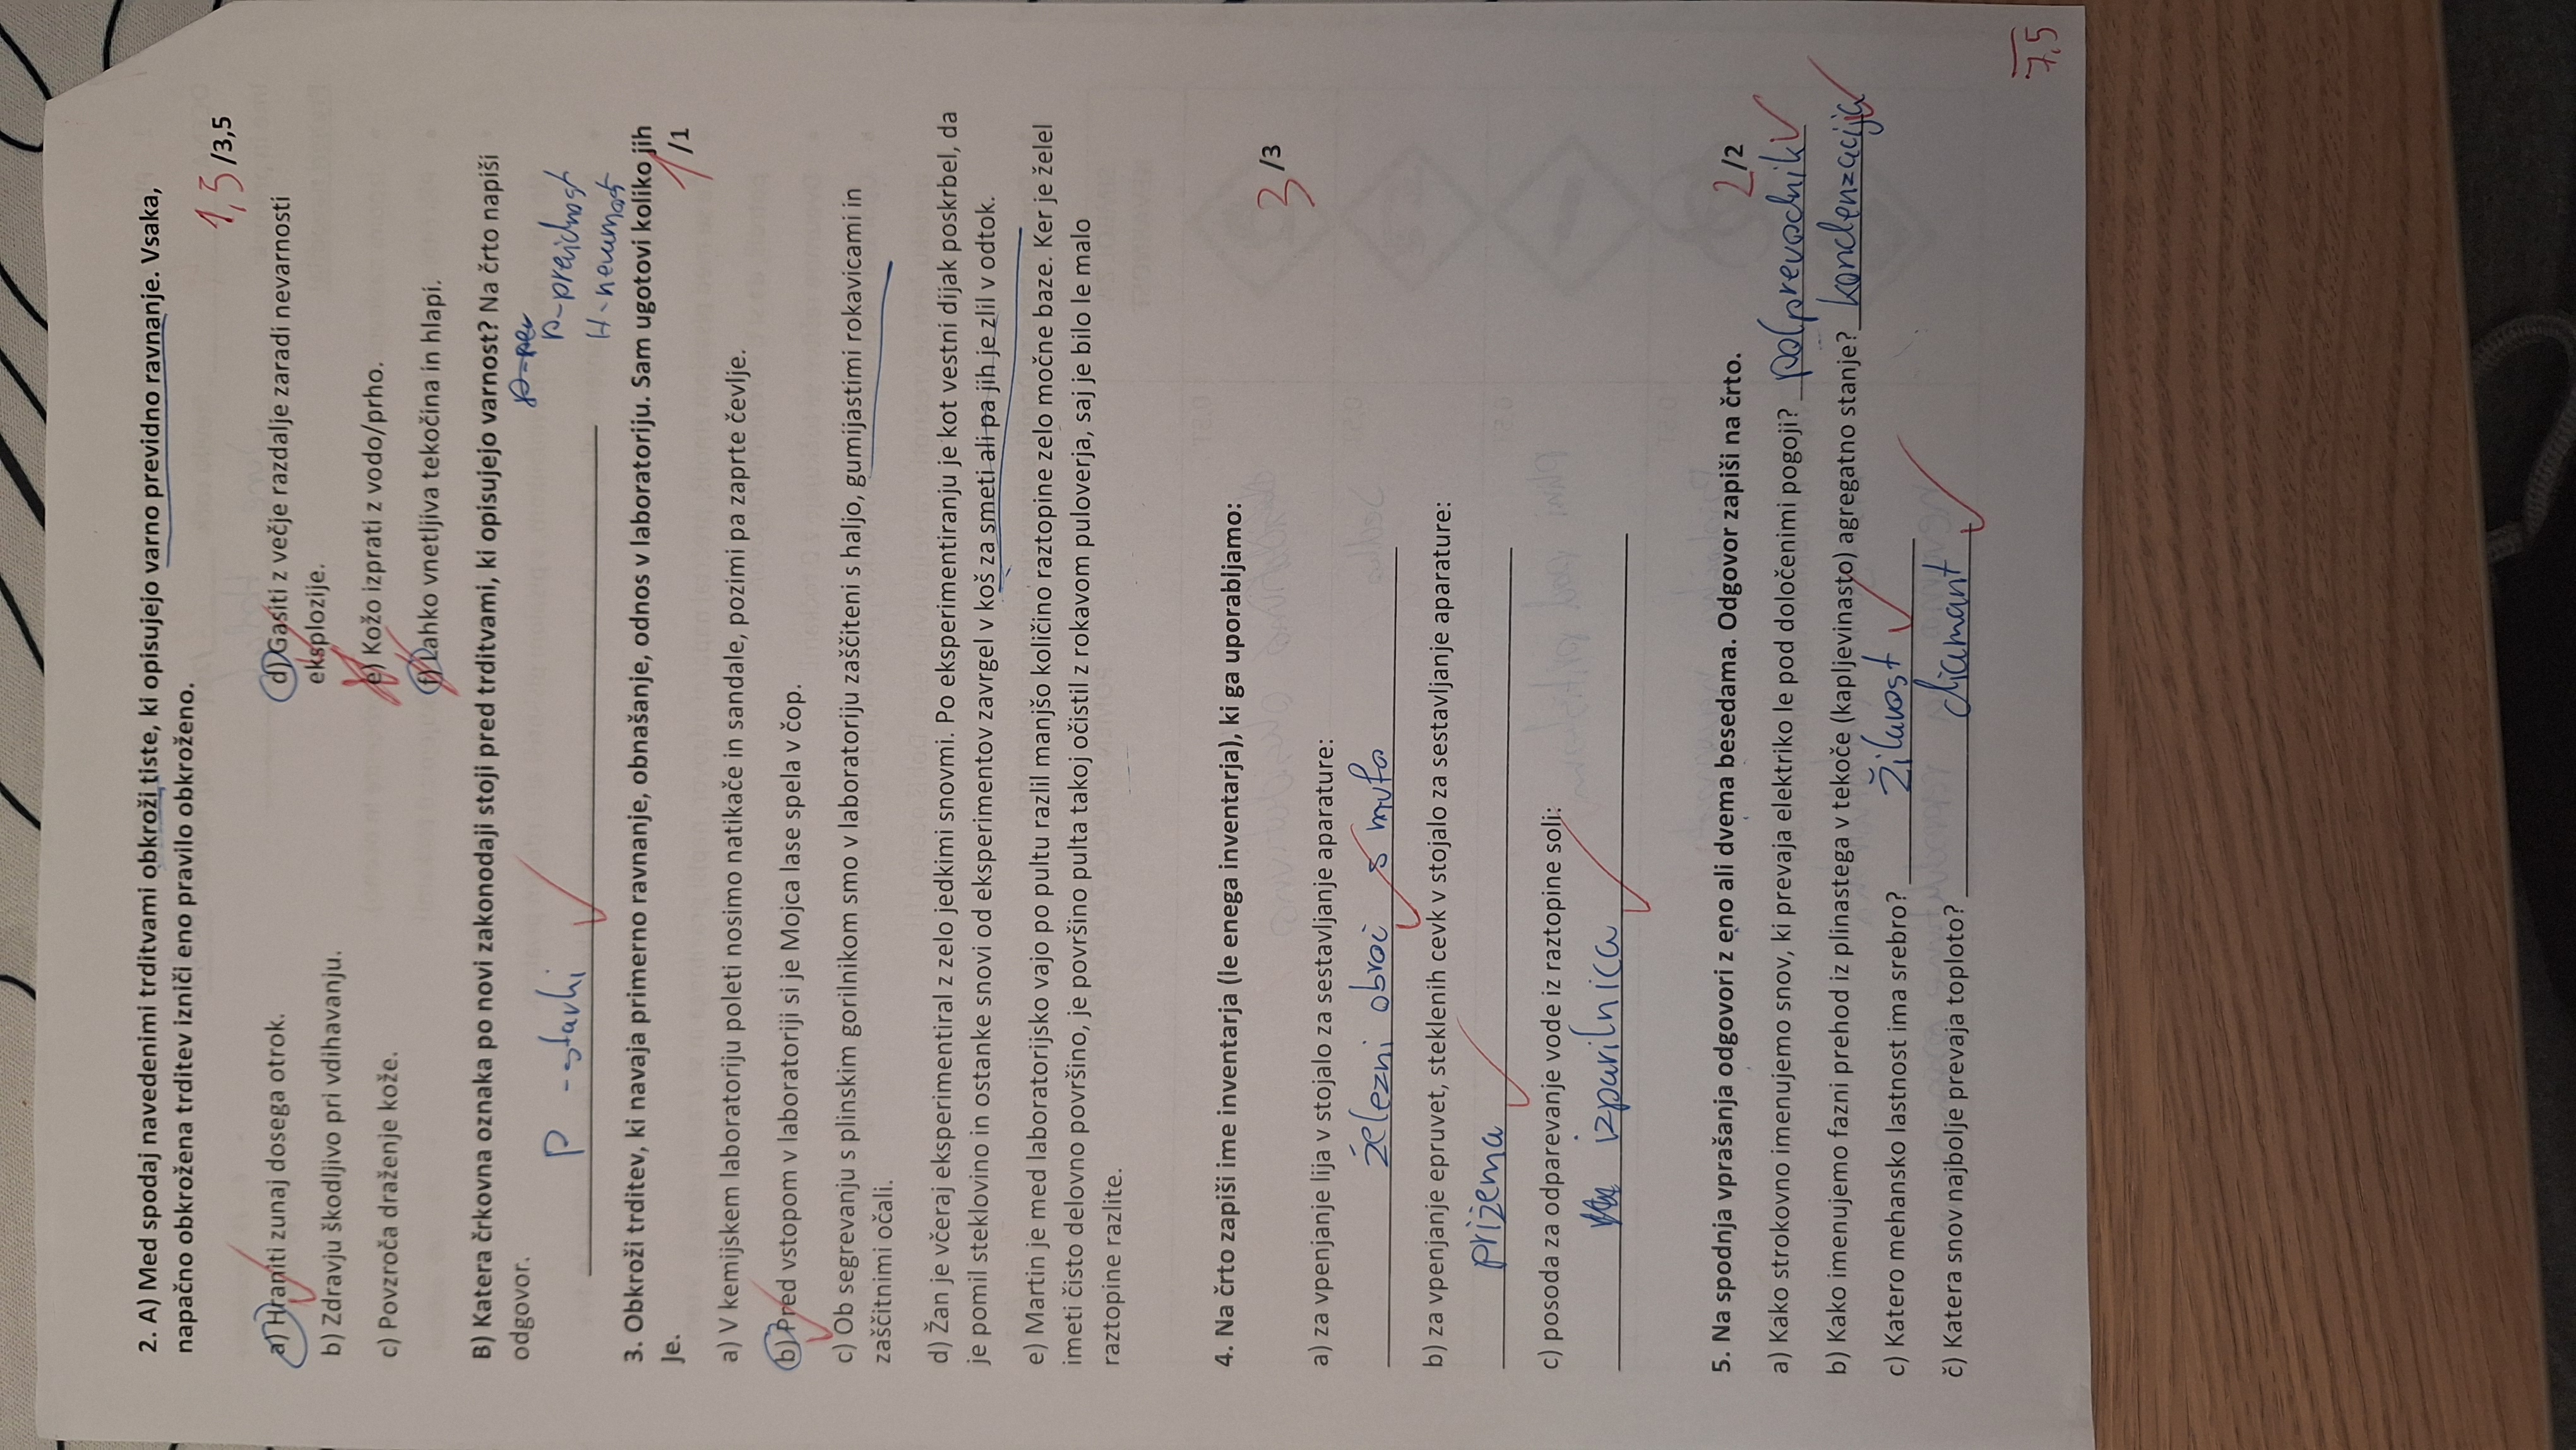 2. A) Med spodaj navedenimi trditvami obkroži tiste, ki opisujejo varno previdno ravnanje. Vsaka,
napačno obkrožena trditev izniči eno pravilo obkroženo.
1,5 /3,5
a) Hraniti zunaj dosega otrok.
b) Zdravju škodljivo pri vdihavanju.
c) Povzroča draženje kože.
d) Gasiti z večje razdalje zaradi nevarnosti
eksplozije.
e) Kožo izprati z vodo/prho.
f) Lahko vnetljiva tekočina in hlapi.
B) Katera črkovna oznaka po novi zakonodaji stoji pred trditvami, ki opisujejo varnost? Na črto napiši
odgovor.
P - stavki
p-previdnost
H-nevarnost
3. Obkroži trditev, ki navaja primerno ravnanje, obnašanje, odnos v laboratoriju. Sam ugotovi koliko jih
Je.
1 /1
a) V kemijskem laboratoriju poleti nosimo natikače in sandale, pozimi pa zaprte čevlje.
b) Pred vstopom v laboratoriji si je Mojca lase spela v čop.
c) Ob segrevanju s plinskim gorilnikom smo v laboratoriju zaščiteni s haljo, gumijastimi rokavicami in
zaščitnimi očali.
d) Žan je včeraj eksperimentiral z zelo jedkimi snovmi. Po eksperimentiranju je kot vestni dijak poskrbel, da
je pomil steklovino in ostanke snovi od eksperimentov zavrgel v koš za smeti ali pa jih je zlil v odtok.
e) Martin je med laboratorijsko vajo po pultu razlil manjšo količino raztopine zelo močne baze. Ker je želel
imeti čisto delovno površino, je površino pulta takoj očistil z rokavom puloverja, saj je bilo le malo
raztopine razlite.
4. Na črto zapiši ime inventarja (le enega inventarja), ki ga uporabljamo:
3 /3
a) za vpenjanje lija v stojalo za sestavljanje aparature:
železni obroč s mufo
b) za vpenjanje epruvet, steklenih cevk v stojalo za sestavljanje aparature:
prižema
c) posoda za odparevanje vode iz raztopine soli:
izparilnica
5. Na spodnja vprašanja odgovori z eno ali dvema besedama. Odgovor zapiši na črto.
2 /2
a) Kako strokovno imenujemo snov, ki prevaja elektriko le pod določenimi pogoji? polprevodnik
b) Kako imenujemo fazni prehod iz plinastega v tekoče (kapljevinasto) agregatno stanje? kondenzacija
c) Katero mehansko lastnost ima srebro? žilavost
č) Katera snov najbolje prevaja toploto? diamant
7,5